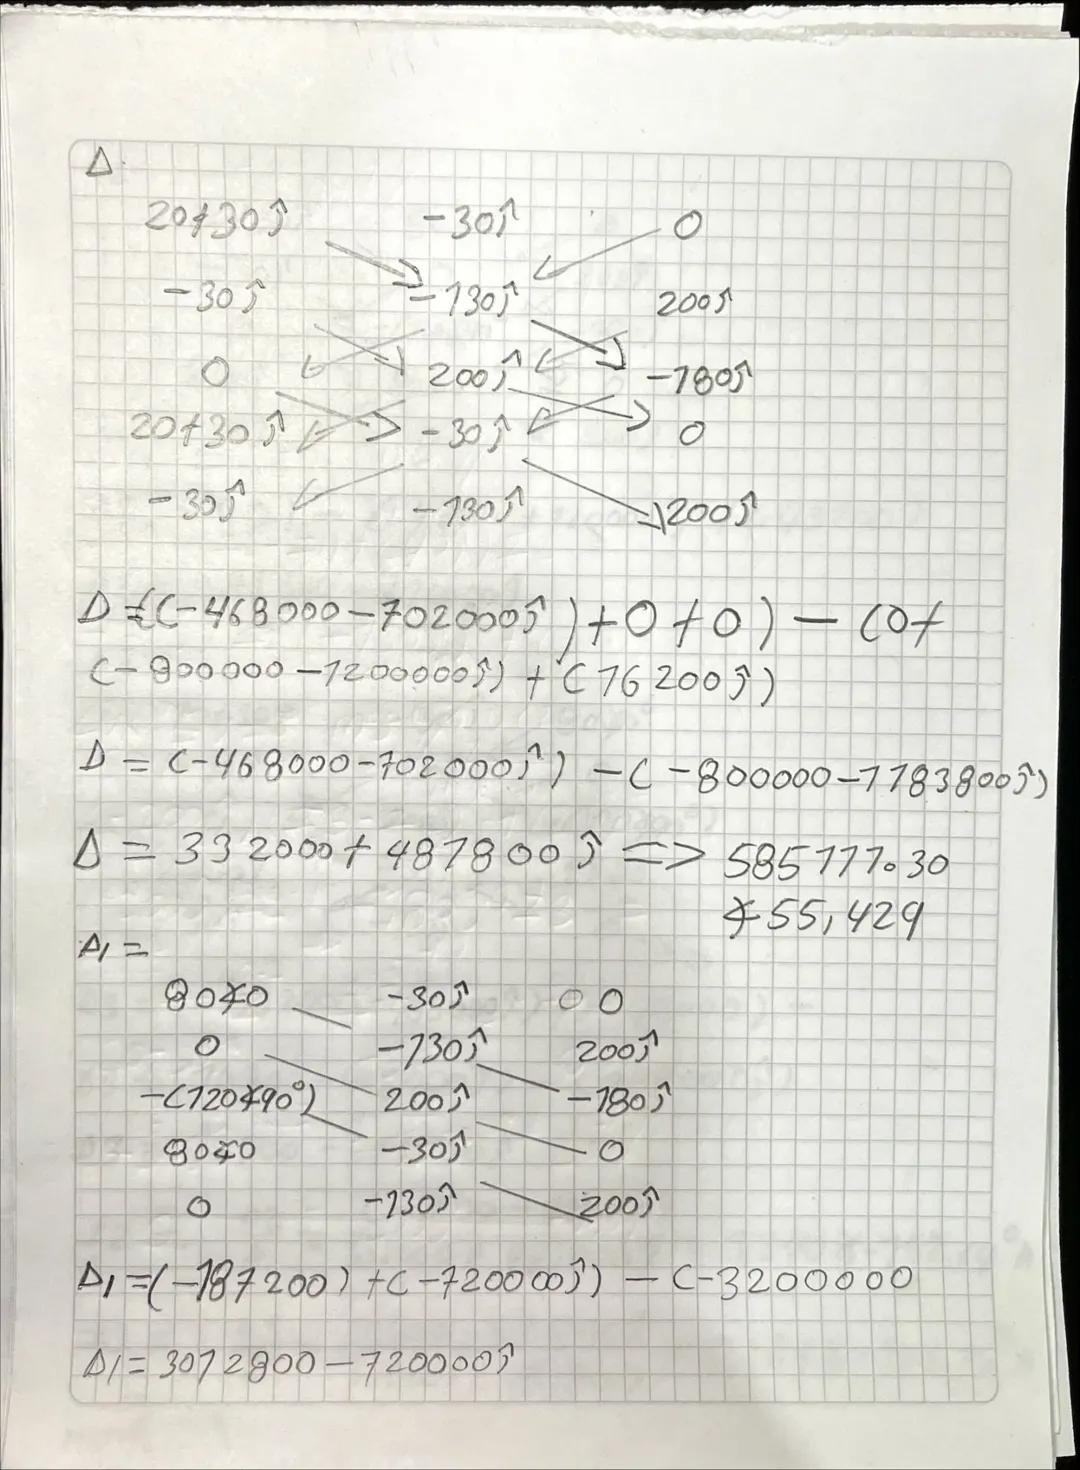 Δ
20+30j -30j 0
-30j -130j 200j
0 200j -180j
20+30j -30j 0
-30j -130j 200j
Δ=((-468000-702000j)+0+0)-(0+
(-800000-1200000j)+(16200j)
Δ=(-468000-702000j)-(-800000-1183800j)
Δ=332000+481800j => 585111.30
∡55,429
Δ1=
80∡0 -30j 0 0
0 -130j 200j
-(120∡90°) 200j -180j
80∡0 -30j 0
0 -130j 200j
Δ1=(-187200)+(-720000j)-(-3200000
Δ1=3012800-720000j